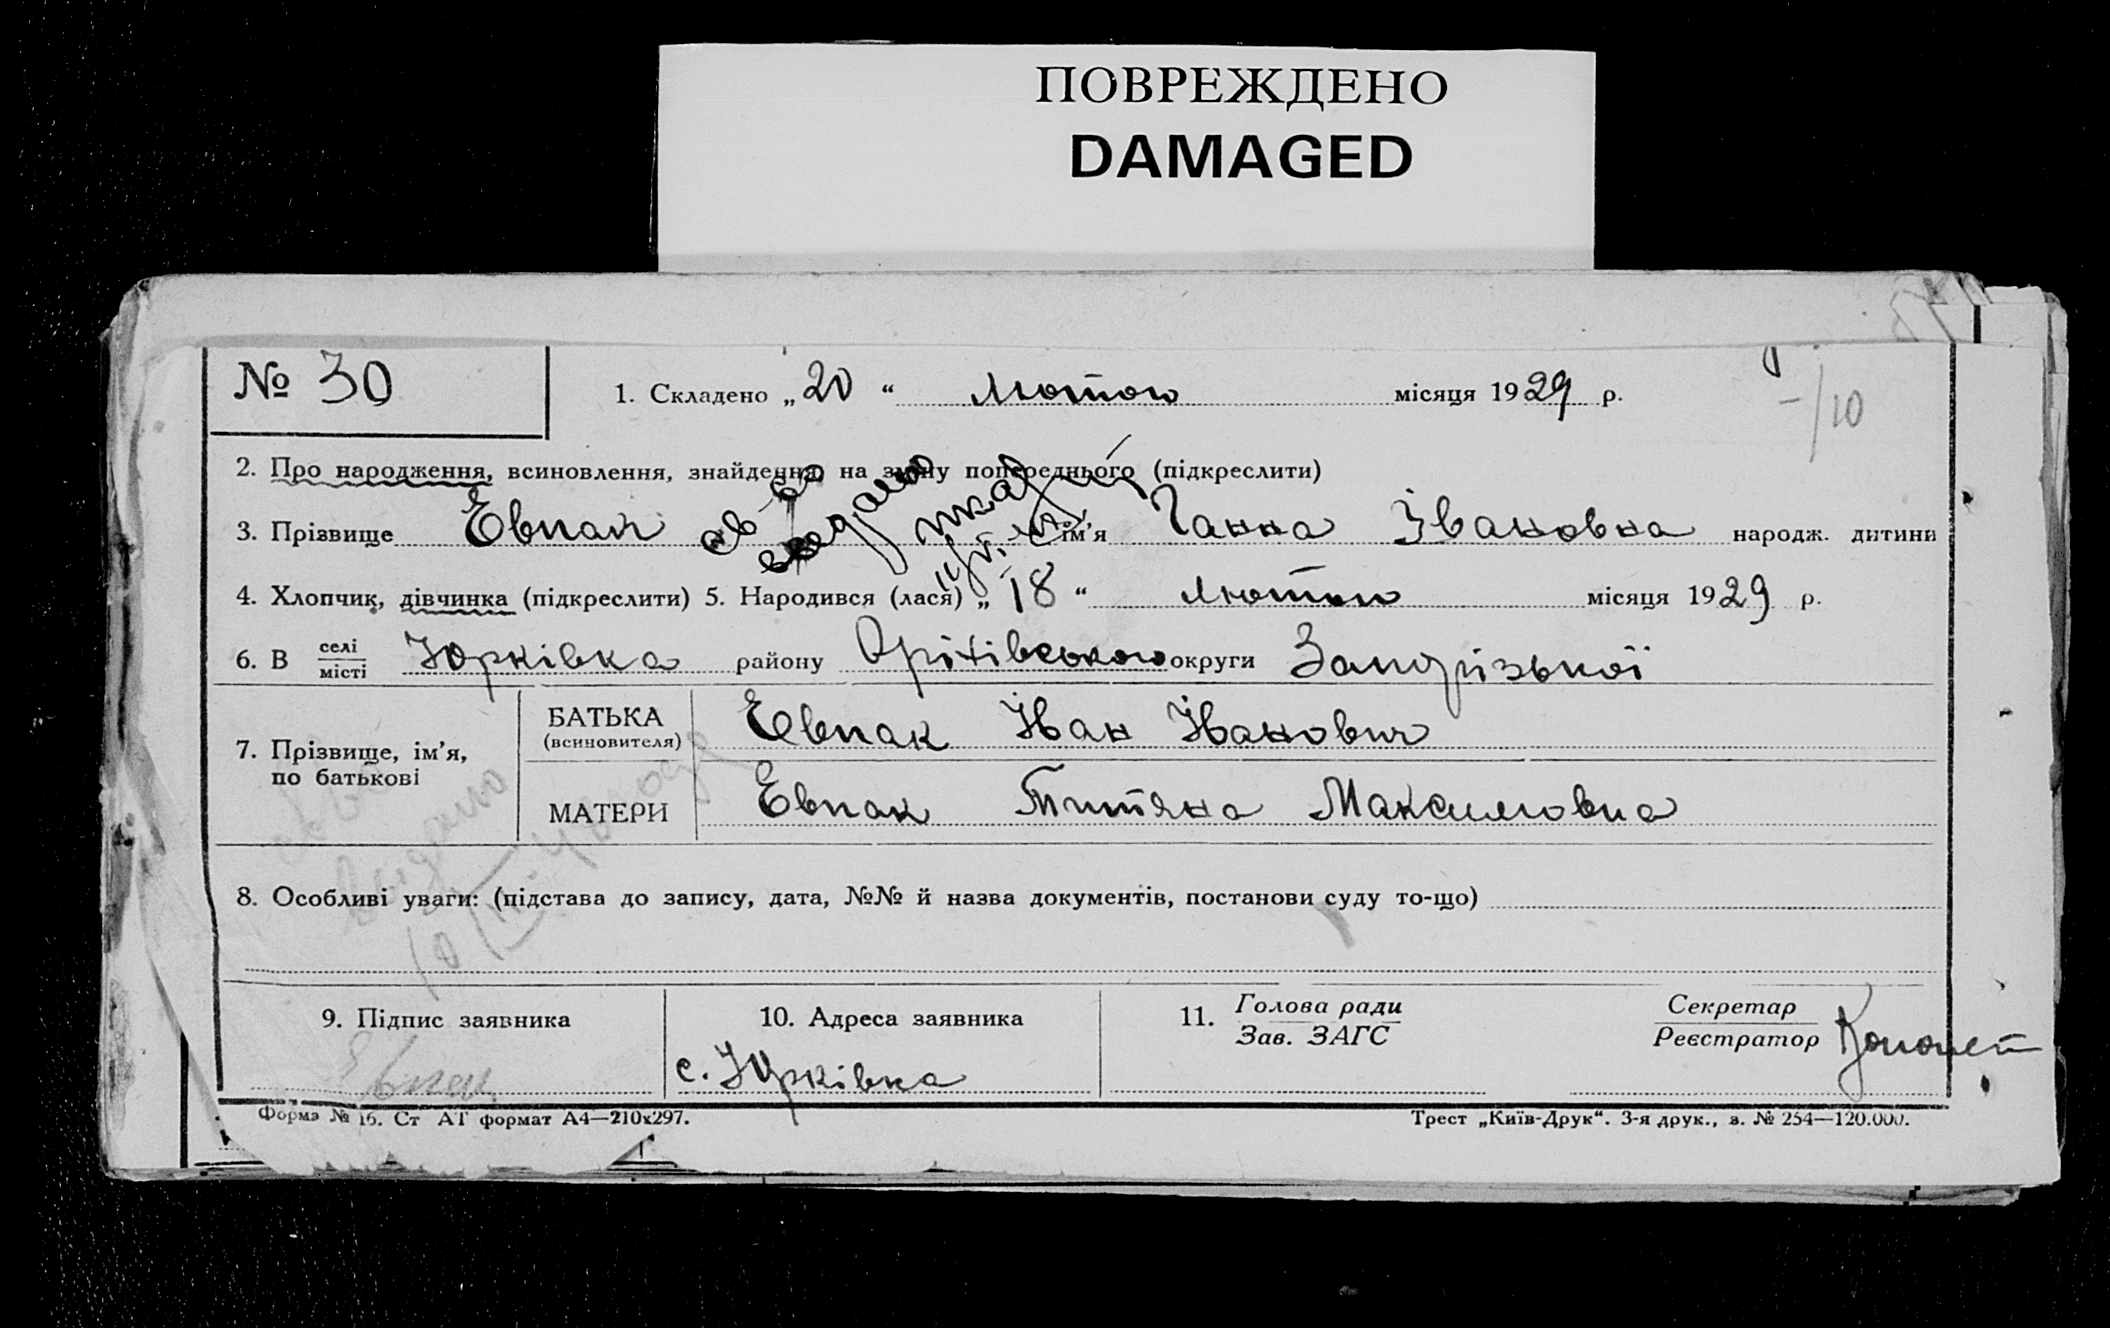 ПОВРЕЖДЕНО
DAMAGED
№ 30
1. Складено „20“ лютого місяця 1929 р.
-/10
2. Про народження, всиновлення, знайдення, на зміну попереднього (підкреслити)
3. Прізвище Евпак ім'я Ганна Івановна народж. дитини
4. Хлопчик, дівчинка (підкреслити) 5. Народився (лася) „18“ лютого місяця 1929 р.
6. В селі місті Юрківка району Оріхівського округи Запорізької
7. Прізвище, ім'я, по батькові
БАТЬКА (всиновителя) Евпак Іван Іванович
МАТЕРИ Евпак Титяна Максимовна
8. Особливі уваги: (підстава до запису, дата, №№ й назва документів, постанови суду то-що)
9. Підпис заявника
Евпак
10. Адреса заявника
с. Юрківка
11. Голова ради
Зав. ЗАГС
Секретар
Реєстратор
Форма № 16. Ст АТ формат А4—210х297.
Трест „Київ-Друк“. 3-я друк., з. № 254—120.000.